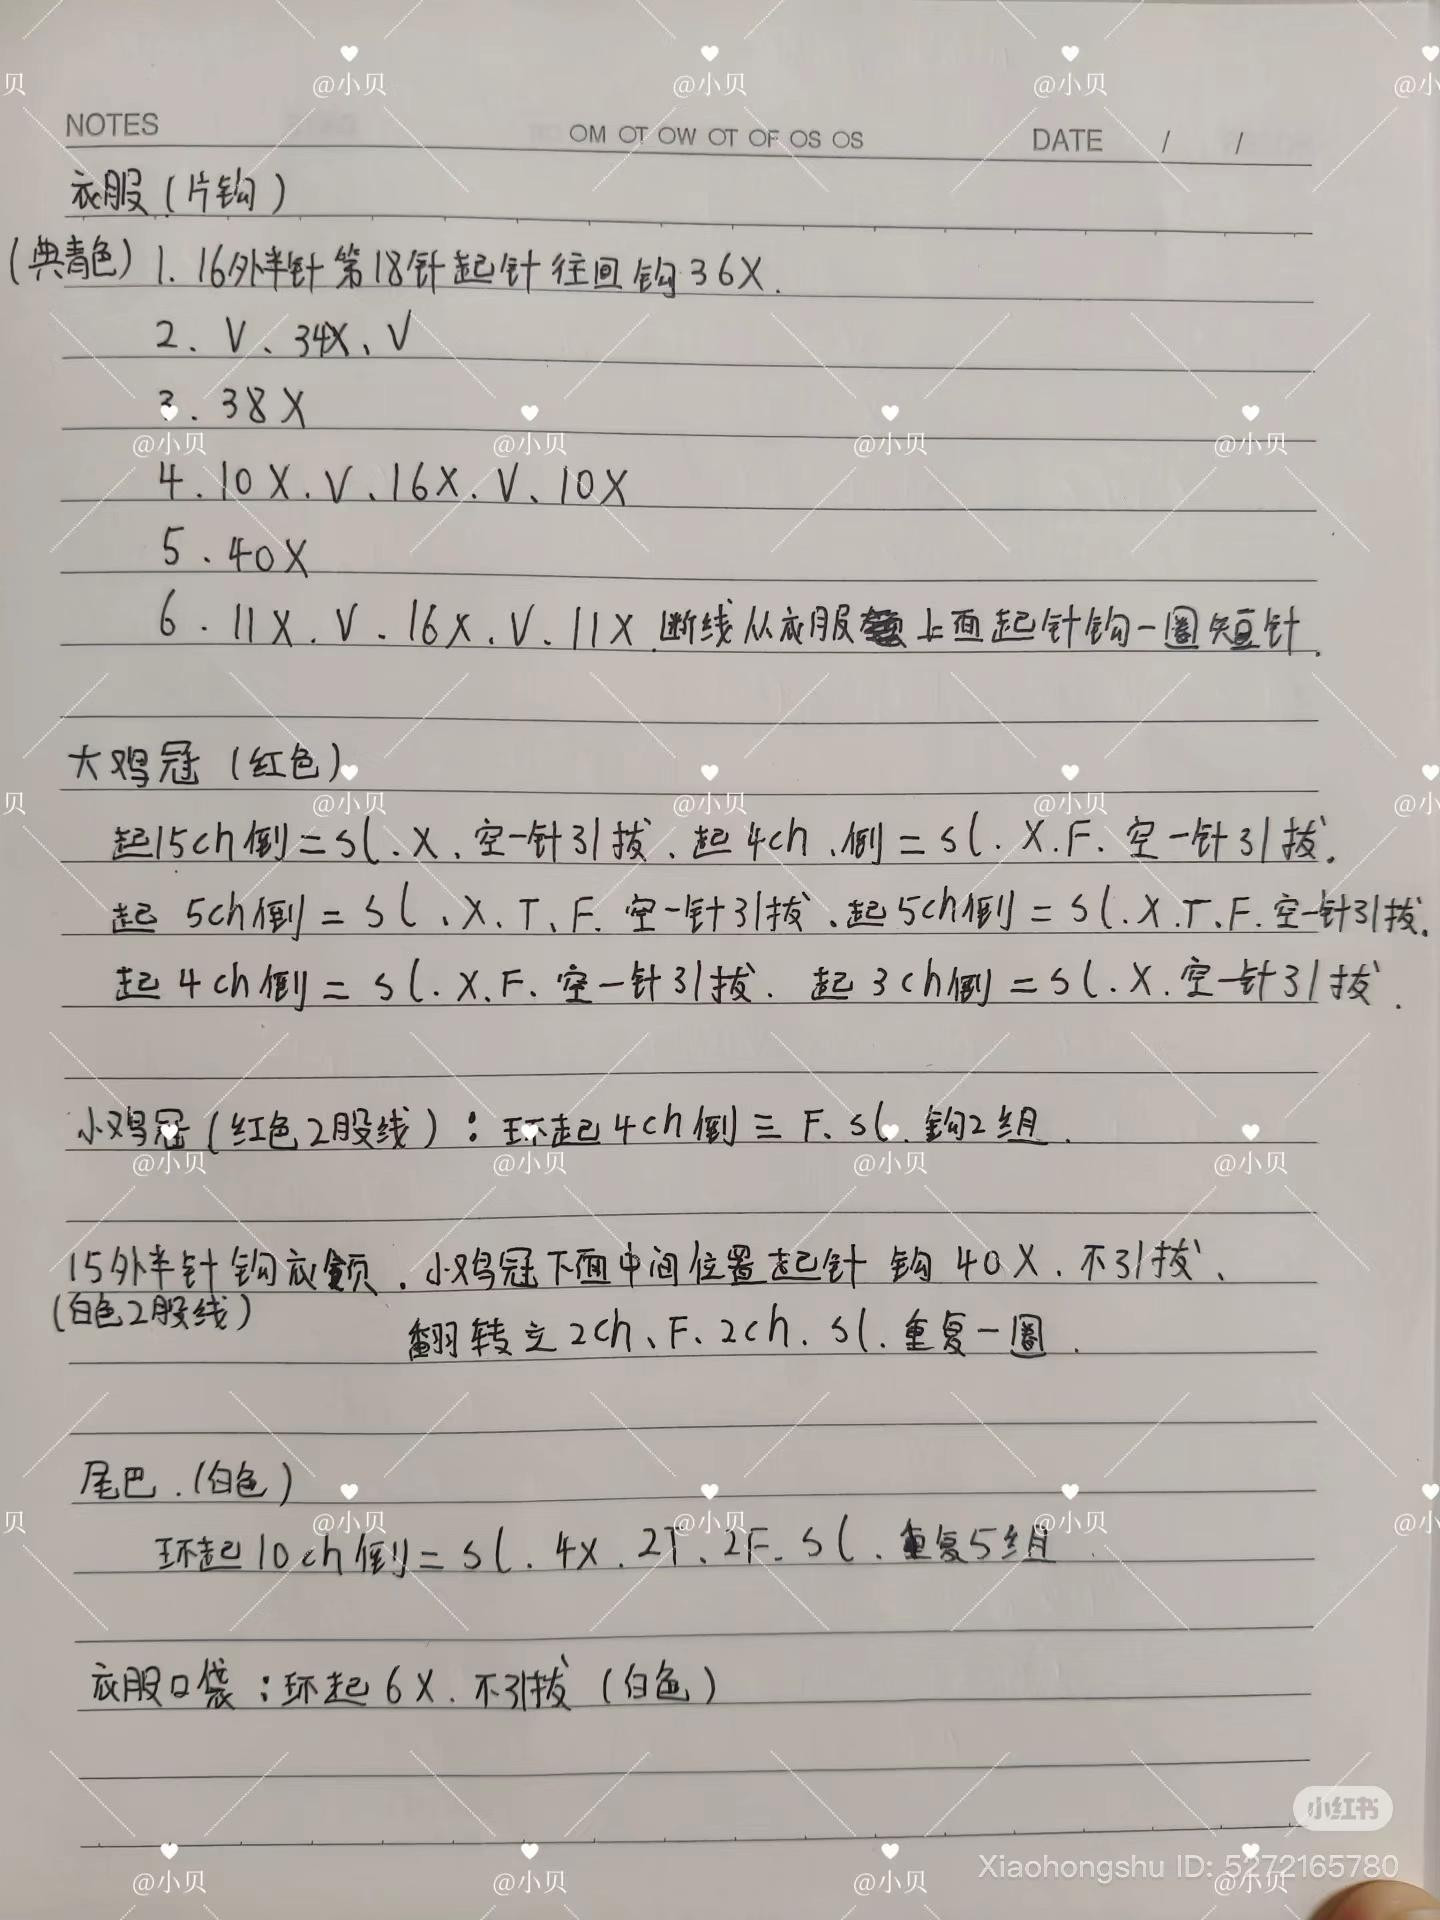 NOTES
OM OT OW OT OF OS OS
DATE / /
衣服(片钩)
(典青色) 1. 16外半针第18针起针往回钩36X.
2. V、34X、V
3. 38X
4. 10X. V、16X. V、10X
5. 40X
6. 11X. V. 16X. V. 11X.断线从衣服上面起针钩一圈短针.
大鸡冠(红色)
起15ch倒二sl. X. 空一针引拔、起4ch、倒二sl. X. F. 空一针引拔.
起 5ch倒二sl、X. T、F. 空一针引拔、起5ch倒二sl. X. T、F. 空一针引拔.
起4ch倒二sl. X. F. 空一针引拔. 起3ch倒二sl. X. 空一针引拔.
小鸡冠(红色2股线):环起4ch倒三F、sl. 钩2组.
15外半针钩衣领. 小鸡冠下面中间位置起针钩40X. 不引拔、
(白色2股线)
翻转立2ch、F、2ch. sl. 重复一圈.
尾巴.(白色)
环起10ch倒二sl. 4X. 2T、2F. sl. 重复5组
衣服口袋:环起6X. 不引拔(白色)
小红书
Xiaohongshu ID: 5272165780
@小贝